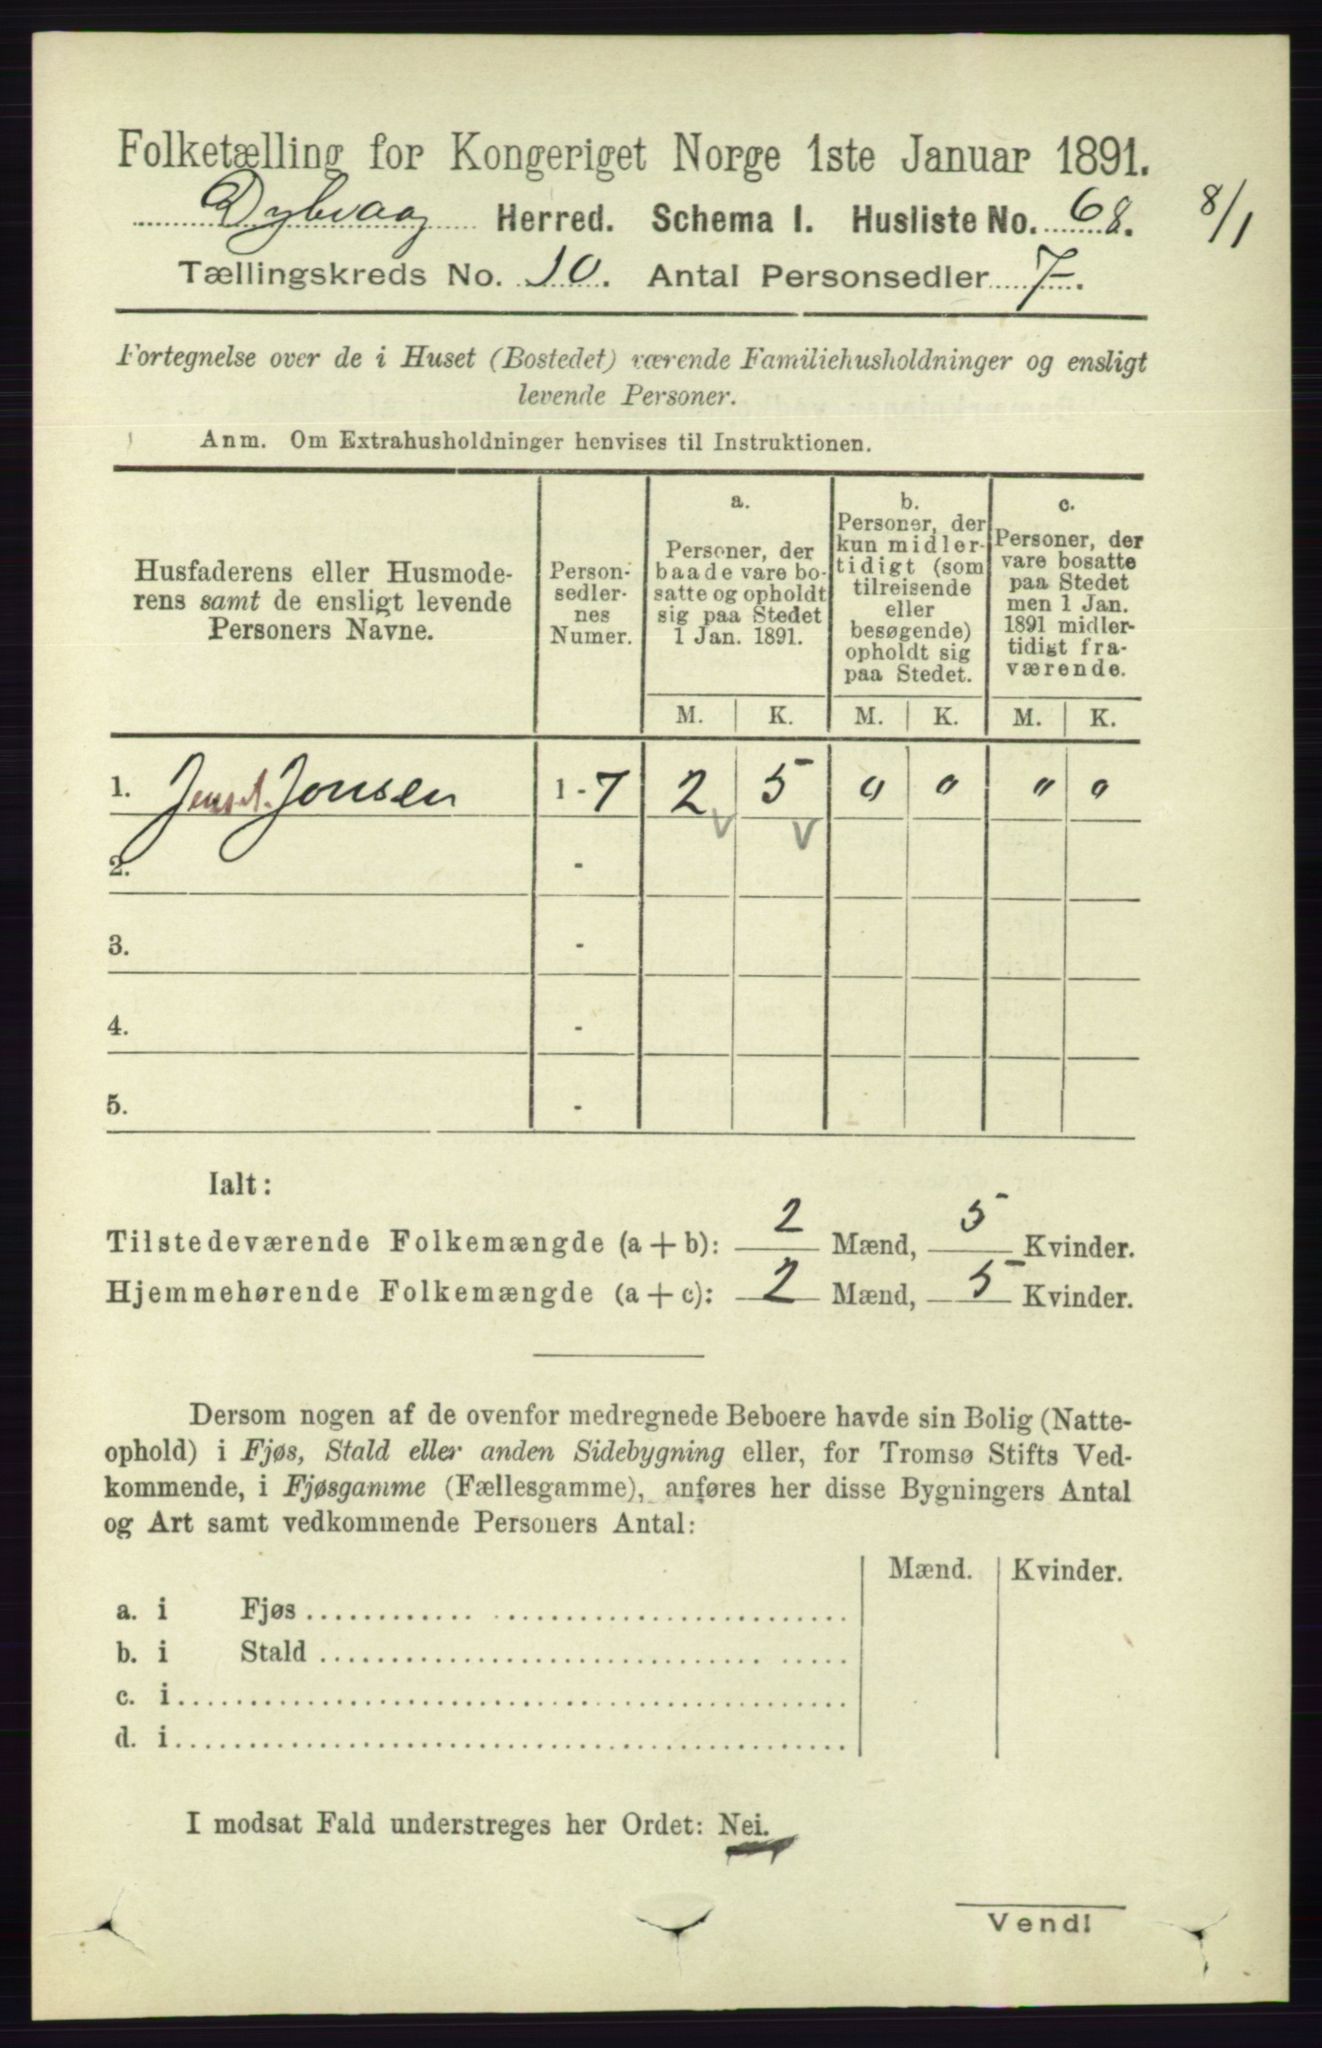 Folketælling for Kongeriget Norge 1ste Januar 1891.
Dybvaag Herred. Schema I. Husliste No. 68.
8/1
Tællingskreds No. 10. Antal Personsedler 7.
Fortegnelse over de i Huset (Bostedet) værende Familiehusholdninger og ensligt
levende Personer.
Anm. Om Extrahusholdninger henvises til Instruktionen.
Husfaderens eller Husmode-
rens samt de ensligt levende
Personers Navne.
Person-
sedler-
nes
Numer.
a.
Personer, der
baade vare bo-
satte og opholdt
sig paa Stedet
1 Jan. 1891.
b.
Personer, der
kun midler-
tidigt (som
tilreisende
eller
besøgende)
opholdt sig
paa Stedet.
c.
Personer, der
vare bosatte
paa Stedet
men 1 Jan.
1891 midler-
tidigt fra-
værende.
M. K. M. K. M. K.
1. Jonsen 1 - 7 2 5 " " " "
2. -
3. -
4. -
5. -
Ialt:
Tilstedeværende Folkemængde (a + b): 2 Mænd, 5 Kvinder.
Hjemmehørende Folkemængde (a + c): 2 Mænd, 5 Kvinder.
Dersom nogen af de ovenfor medregnede Beboere havde sin Bolig (Natte-
ophold) i Fjøs, Stald eller anden Sidebygning eller, for Tromsø Stifts Ved-
kommende, i Fjøsgamme (Fællesgamme), anføres her disse Bygningers Antal
og Art samt vedkommende Personers Antal:
Mænd. Kvinder.
a. i Fjøs
b. i Stald
c. i
d. i
I modsat Fald understreges her Ordet: Nei.
Vend!